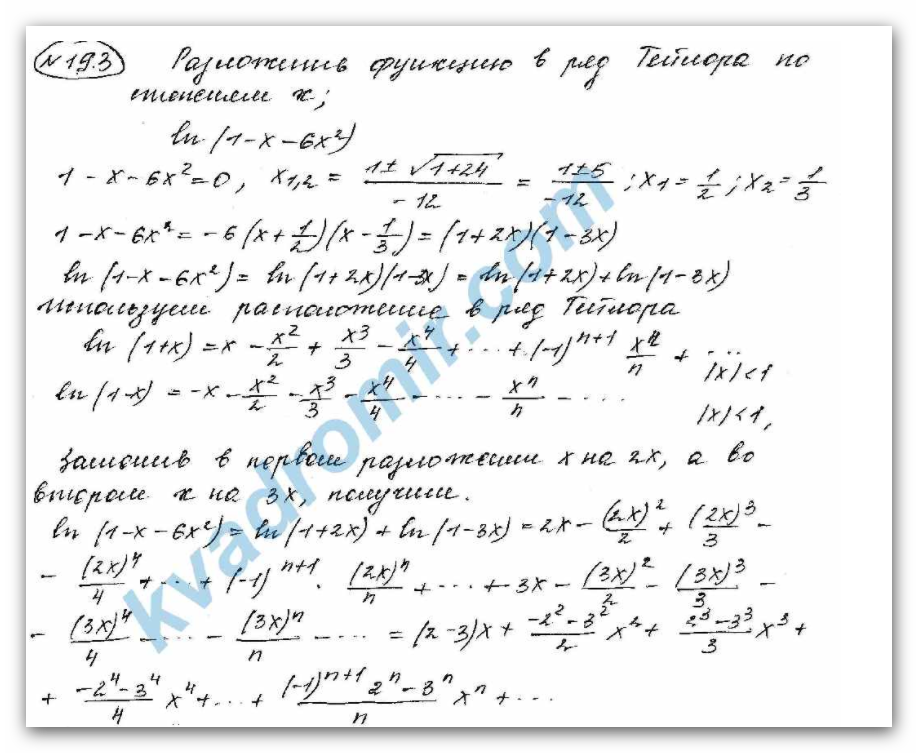 N 19.3 Разложив функцию в ряд Тейлора по
степеням x;
ln (1-x-6x²)
1-x-6x²=0, x1,2 = (1±√(1+24))/(-12) = (1±5)/(-12); x1=1/2; x2=1/3
1-x-6x² = -6(x+1/2)(x-1/3) = (1+2x)(1-3x)
ln (1-x-6x²) = ln (1+2x)(1-3x) = ln(1+2x)+ln(1-3x)
Используем расположение в ряд Тейлора
ln (1+x) = x - x²/2 + x³/3 - x⁴/4 + ... + (-1)ⁿ⁺¹ xⁿ/n + ... |x|<1
ln (1-x) = -x - x²/2 - x³/3 - x⁴/4 - ... - xⁿ/n - ... |x|<1,
Заменив в первом разложении x на 2x, а во
втором x на 3x, получим.
ln (1-x-6x²) = ln(1+2x) + ln(1-3x) = 2x - (2x)²/2 + (2x)³/3 -
- (2x)⁴/4 + ... + (-1)ⁿ⁺¹ · (2x)ⁿ/n + ... + -3x - (3x)²/2 - (3x)³/3 -
- (3x)⁴/4 - ... - (3x)ⁿ/n - ... = (2-3)x + (-2²-3²)/2 x² + (2³-3³)/3 x³ +
+ (-2⁴-3⁴)/4 x⁴ + ... + ((-1)ⁿ⁺¹ 2ⁿ-3ⁿ)/n xⁿ + ...
kvadromir.com